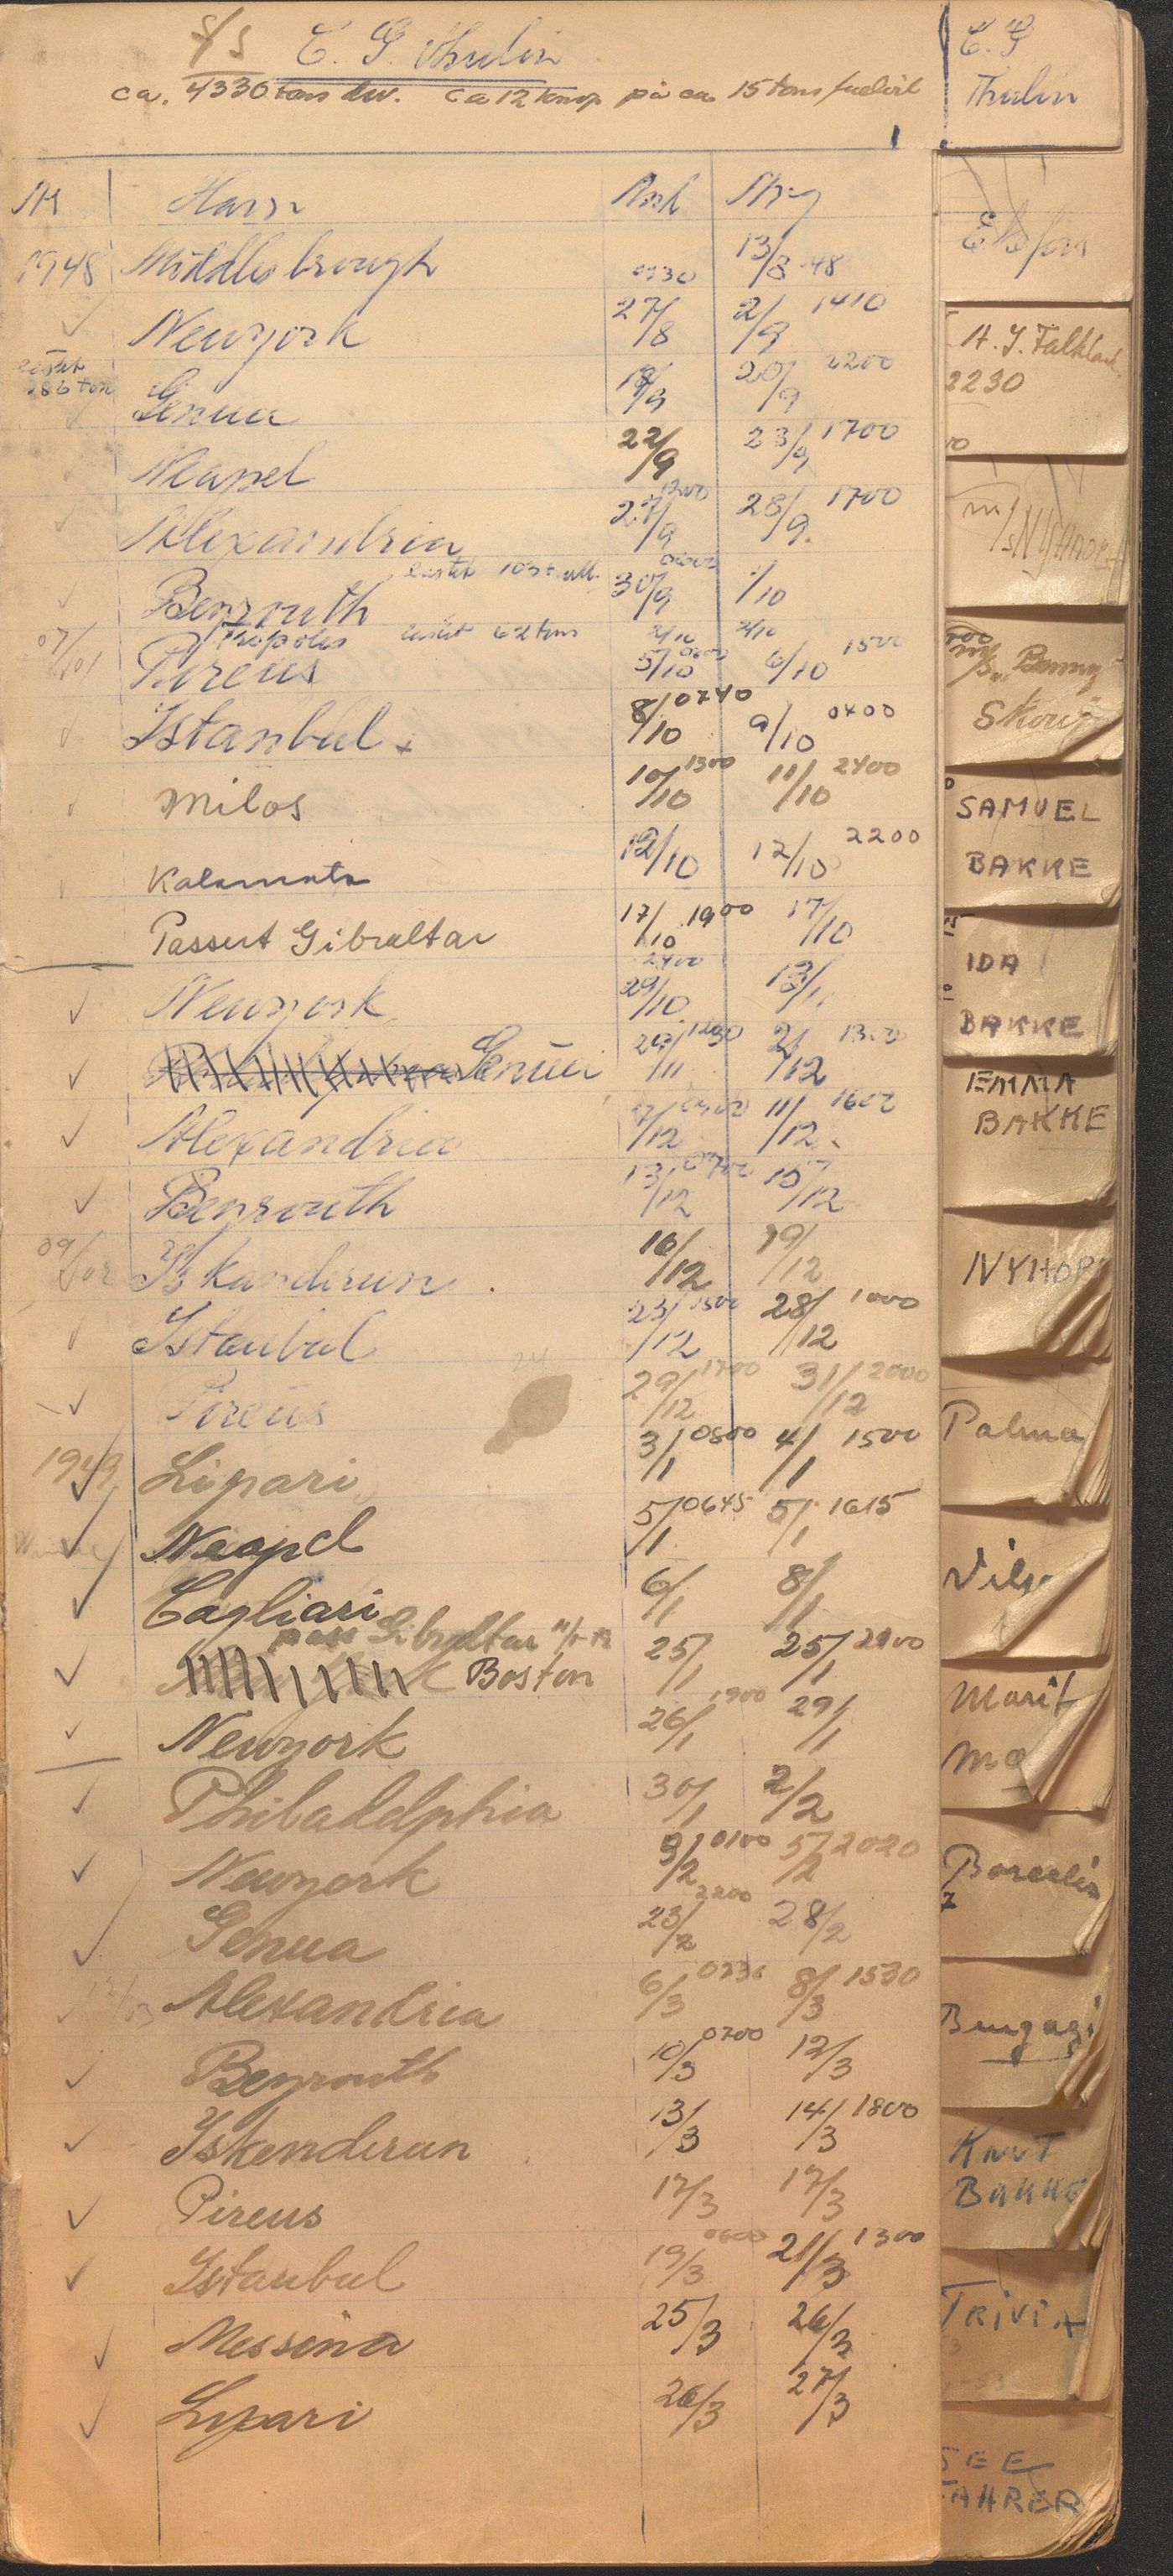 S/S C. G. Thulin
ca. 4330 tons dw. ca 12 knop på ca 15 tons fueloil
År Havn Ank Avg
1948 Middlesbrough 13/8-48
Newyork 27/8 0730 2/9 1410
lastet 286 ton
Genua 18/9 20/9 2200
Neapel 22/9 23/9 1700
Alexandria 27/9 1200 28/9 1700
Beyrouth lastet 30/9 /10
Tripolis lastet 62 tons 2/10 2/10
Pireus 5/10 6/10 1500
Istanbul 8/10 0740 9/10 0400
Milos 10/10 1300 11/10 2400
Kalamata 12/10 12/10 2200
Passert Gibraltar 17/10 1900 17/10
Newyork 29/10 2400
Genua /11 2/12
Alexandria 11/12 1600
Beyrouth 13/12 15/12
Iskanderun 16/12 19/12
Istanbul 23/12 1500 28/12 1000
Pireus 29/12 1700 31/12 2000
1949 Lipari 3/1 0800 4/1 1500
Neapel 5/1 0645 5/1 1615
Cagliari 6/1 8/1
pass Gibraltar
Boston 25/1 25/1
Newyork 26/1 1900 29/1
Philadelphia 30/1 2/2
Newyork 3/2 0100 5/2 2020
Genua 23/2 2200 28/2
Alexandria 6/3 8/3 1530
Beyrouth 10/3 0700 12/3
Iskenderun 13/3 14/3 1800
Pireus 17/3 17/3
Istanbul 19/3 0600 21/3 1300
Messina 25/3 26/3
Lipari 26/3 27/3
C. G
Thulin
Ekefors
2230
M/S NYHAVN
M/S Benny
Skou
SAMUEL
BAKKE
IDA
BAKKE
EMMA
BAKKE
NYHOR
Palma
Marit
Mæ
KNUT
BAKKE
TRIVIA
SEE
FAHRER